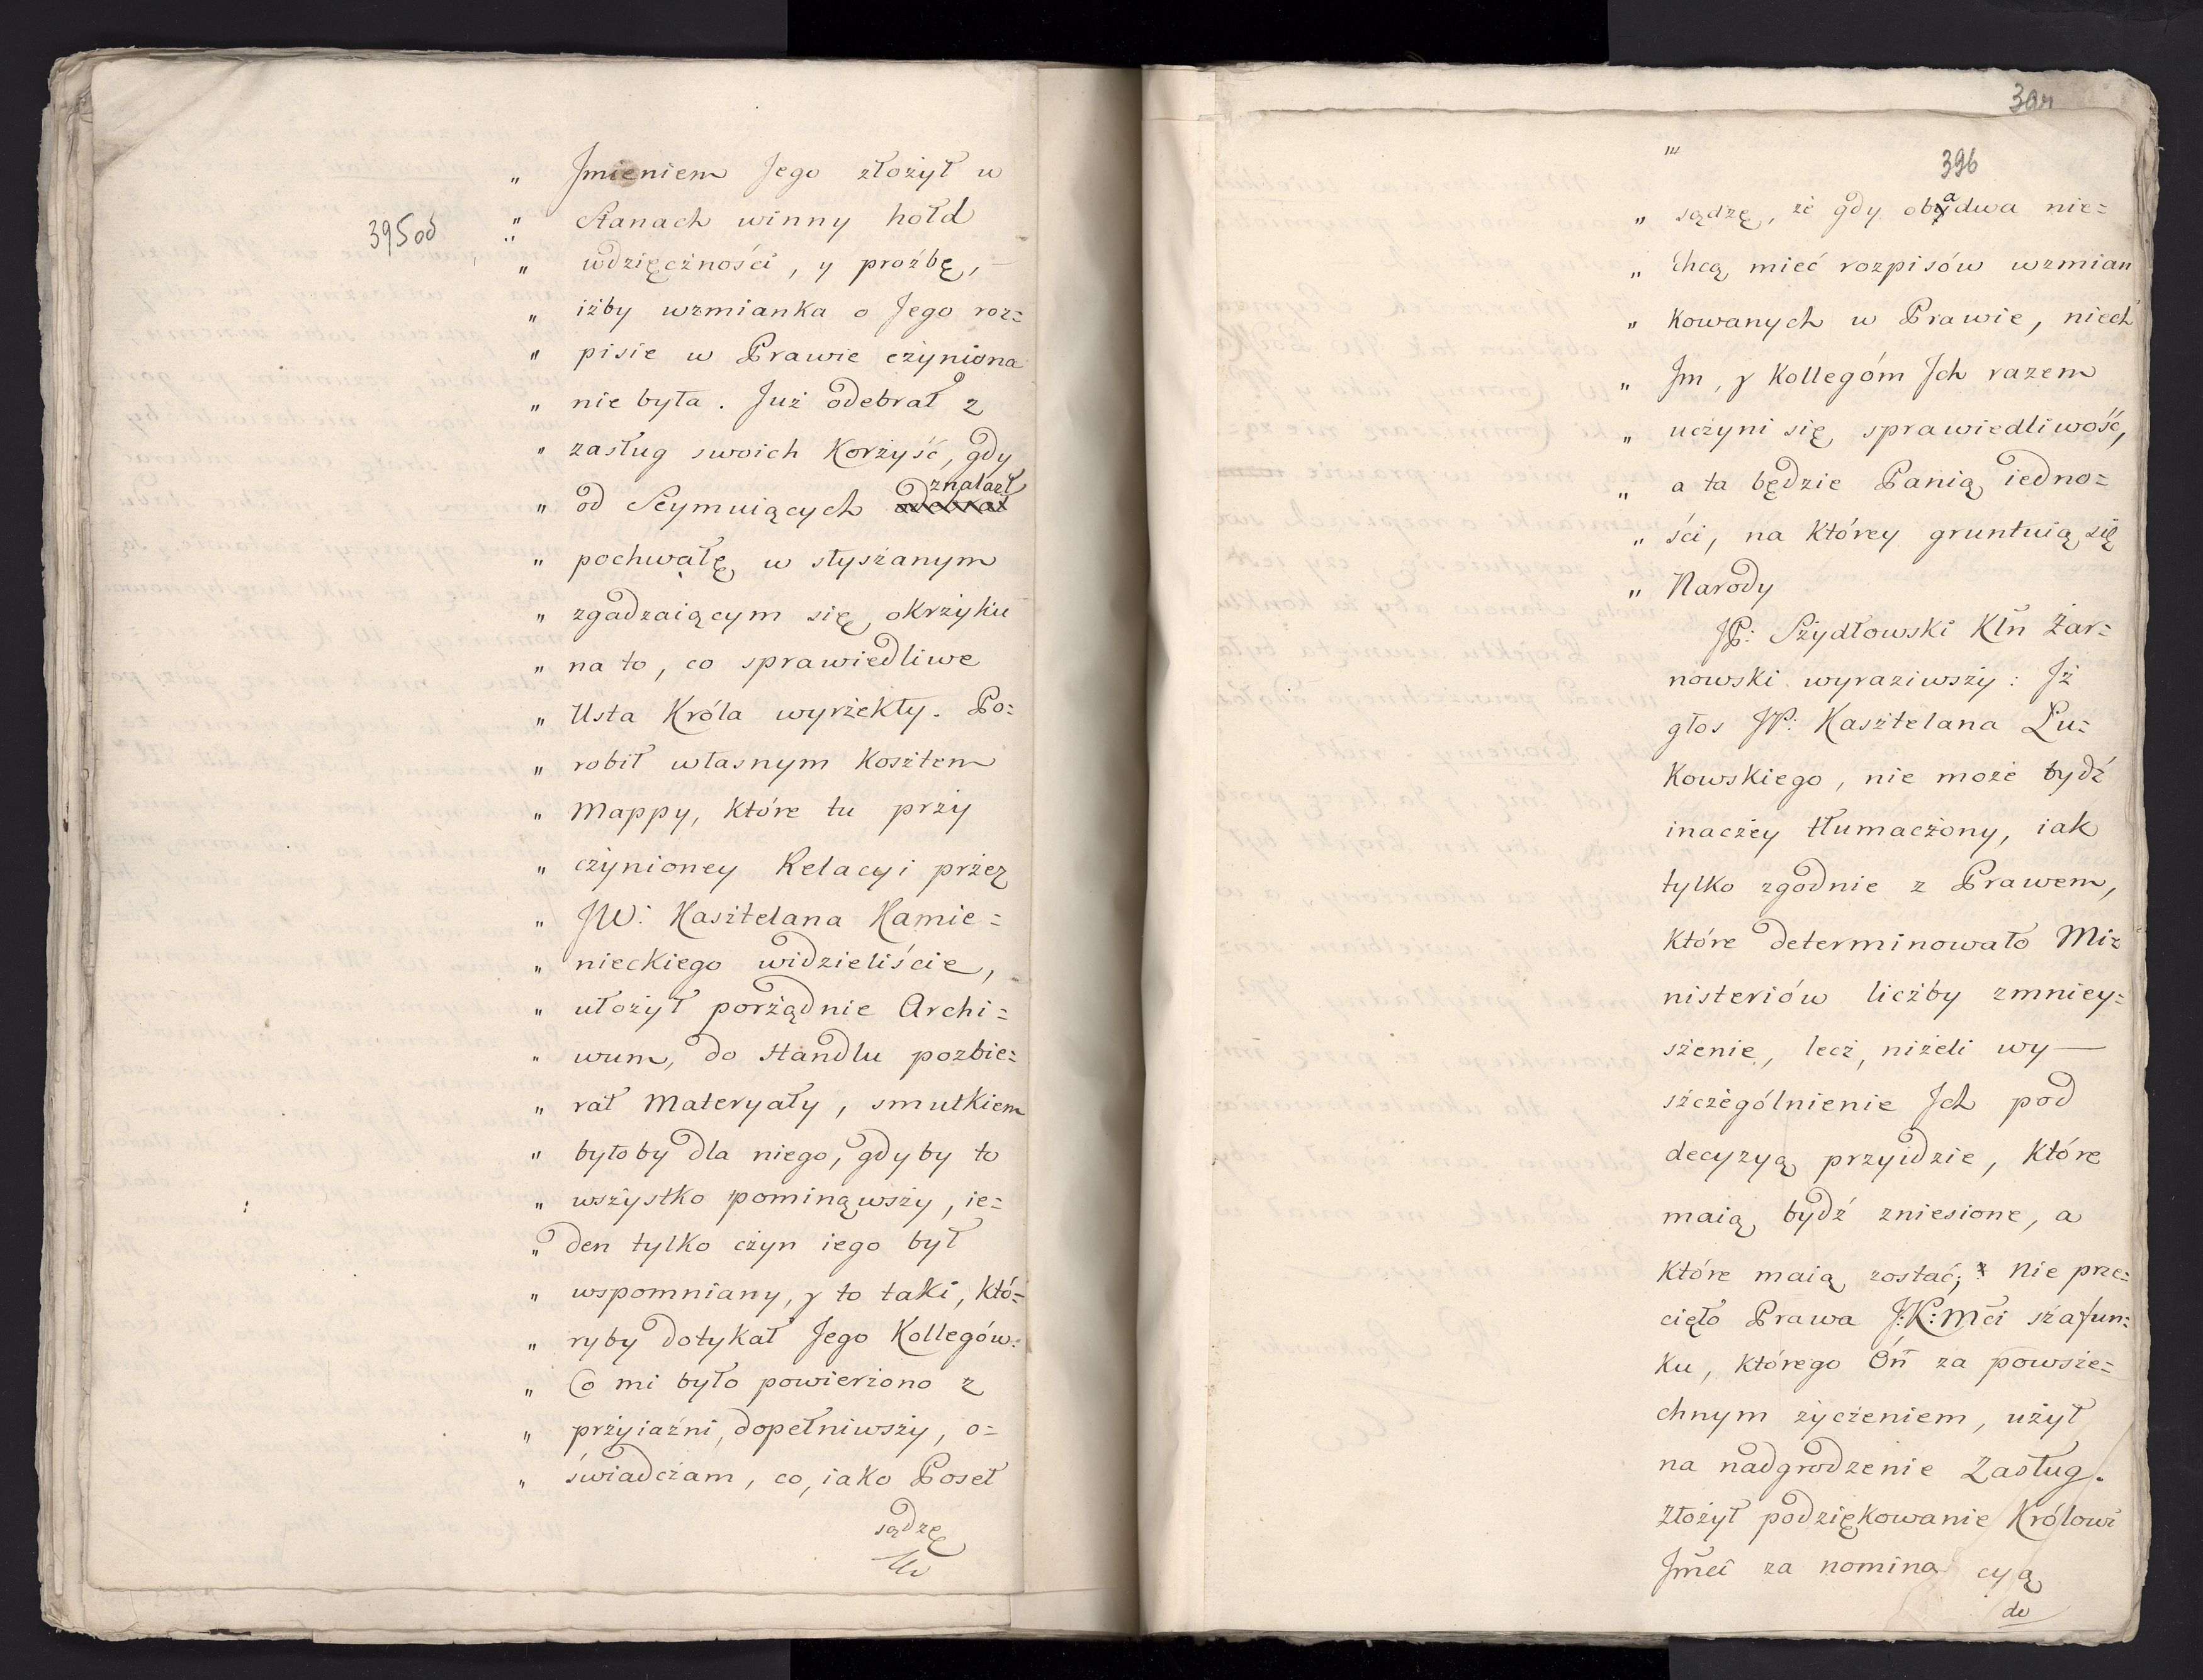 395od
„ Jmieniem Jego złożył w
„ Stanach winny hołd
„ wdzięczności, y proźbę, –
„ iżby wzmianka o Jego roz=
„ pisie w Prawie czyniona
„ nie była. Już odebrał z
„ zasług swoich Korzyść, gdy
„ od Seymuiących odebrał znalazł
„ pochwałę w słyszanym
„ zgadzaiącym się okrzyku
„ na to, co sprawiedliwe
„ Usta Króla wyrzekły. Po=
„ robił własnym Kosztem
„ Mappy, Które tu przy
„ czynioney Relacyi przez
„ JW: Kasztelana Kamie=
„ nieckiego widzieliście,
„ ułożył porządnie Archi=
„ wum, do Handlu pozbie=
„ rał Materyały, smutkiem
„ byłoby dla niego, gdyby to
„ wszystko pominąwszy, ie=
„ den tylko czyn iego był
„ wspomniany, y to taki, Któ=
„ ryby dotykał Jego Kollegów:
„ Co mi było powierzono z
„ przyiaźni, dopełniwszy, o=
„ świadczam, co, iako Poseł
sądzę
396
„ sądzę, że gdy obadwa nie=
„ chcą mieć rozpisów wzmian
„ Kowanych w Prawie, niech
„ Jm, y Kollegóm Jch razem
„ uczyni się sprawiedliwość,
„ a ta będzie Panią iedno=
„ ści, na Którey gruntuią się
„ Narody
JP: Szydłowski Kłn Żar=
nowski wyraziwszy: Jż
głos JP: Kasztelana Łu=
Kowskiego, nie może bydź
inaczey tłumaczony, iak
tylko zgodnie z Prawem,
Które determinowało Mi=
nisteriów liczby zmniey=
szenie, lecz, niżeli wy—
szczególnienie Jch pod
decyzyą przyidzie, Które
maią bydź zniesione, a
Które maią zostać; Nie prze=
cięło Prawa J:K:Mći szafun=
Ku, którego Ón za powsze=
chnym życzeniem, użył
na nadgrodzenie Zasług.
Złożył podziękowanie Królowi
Jmći za nominacyą
do